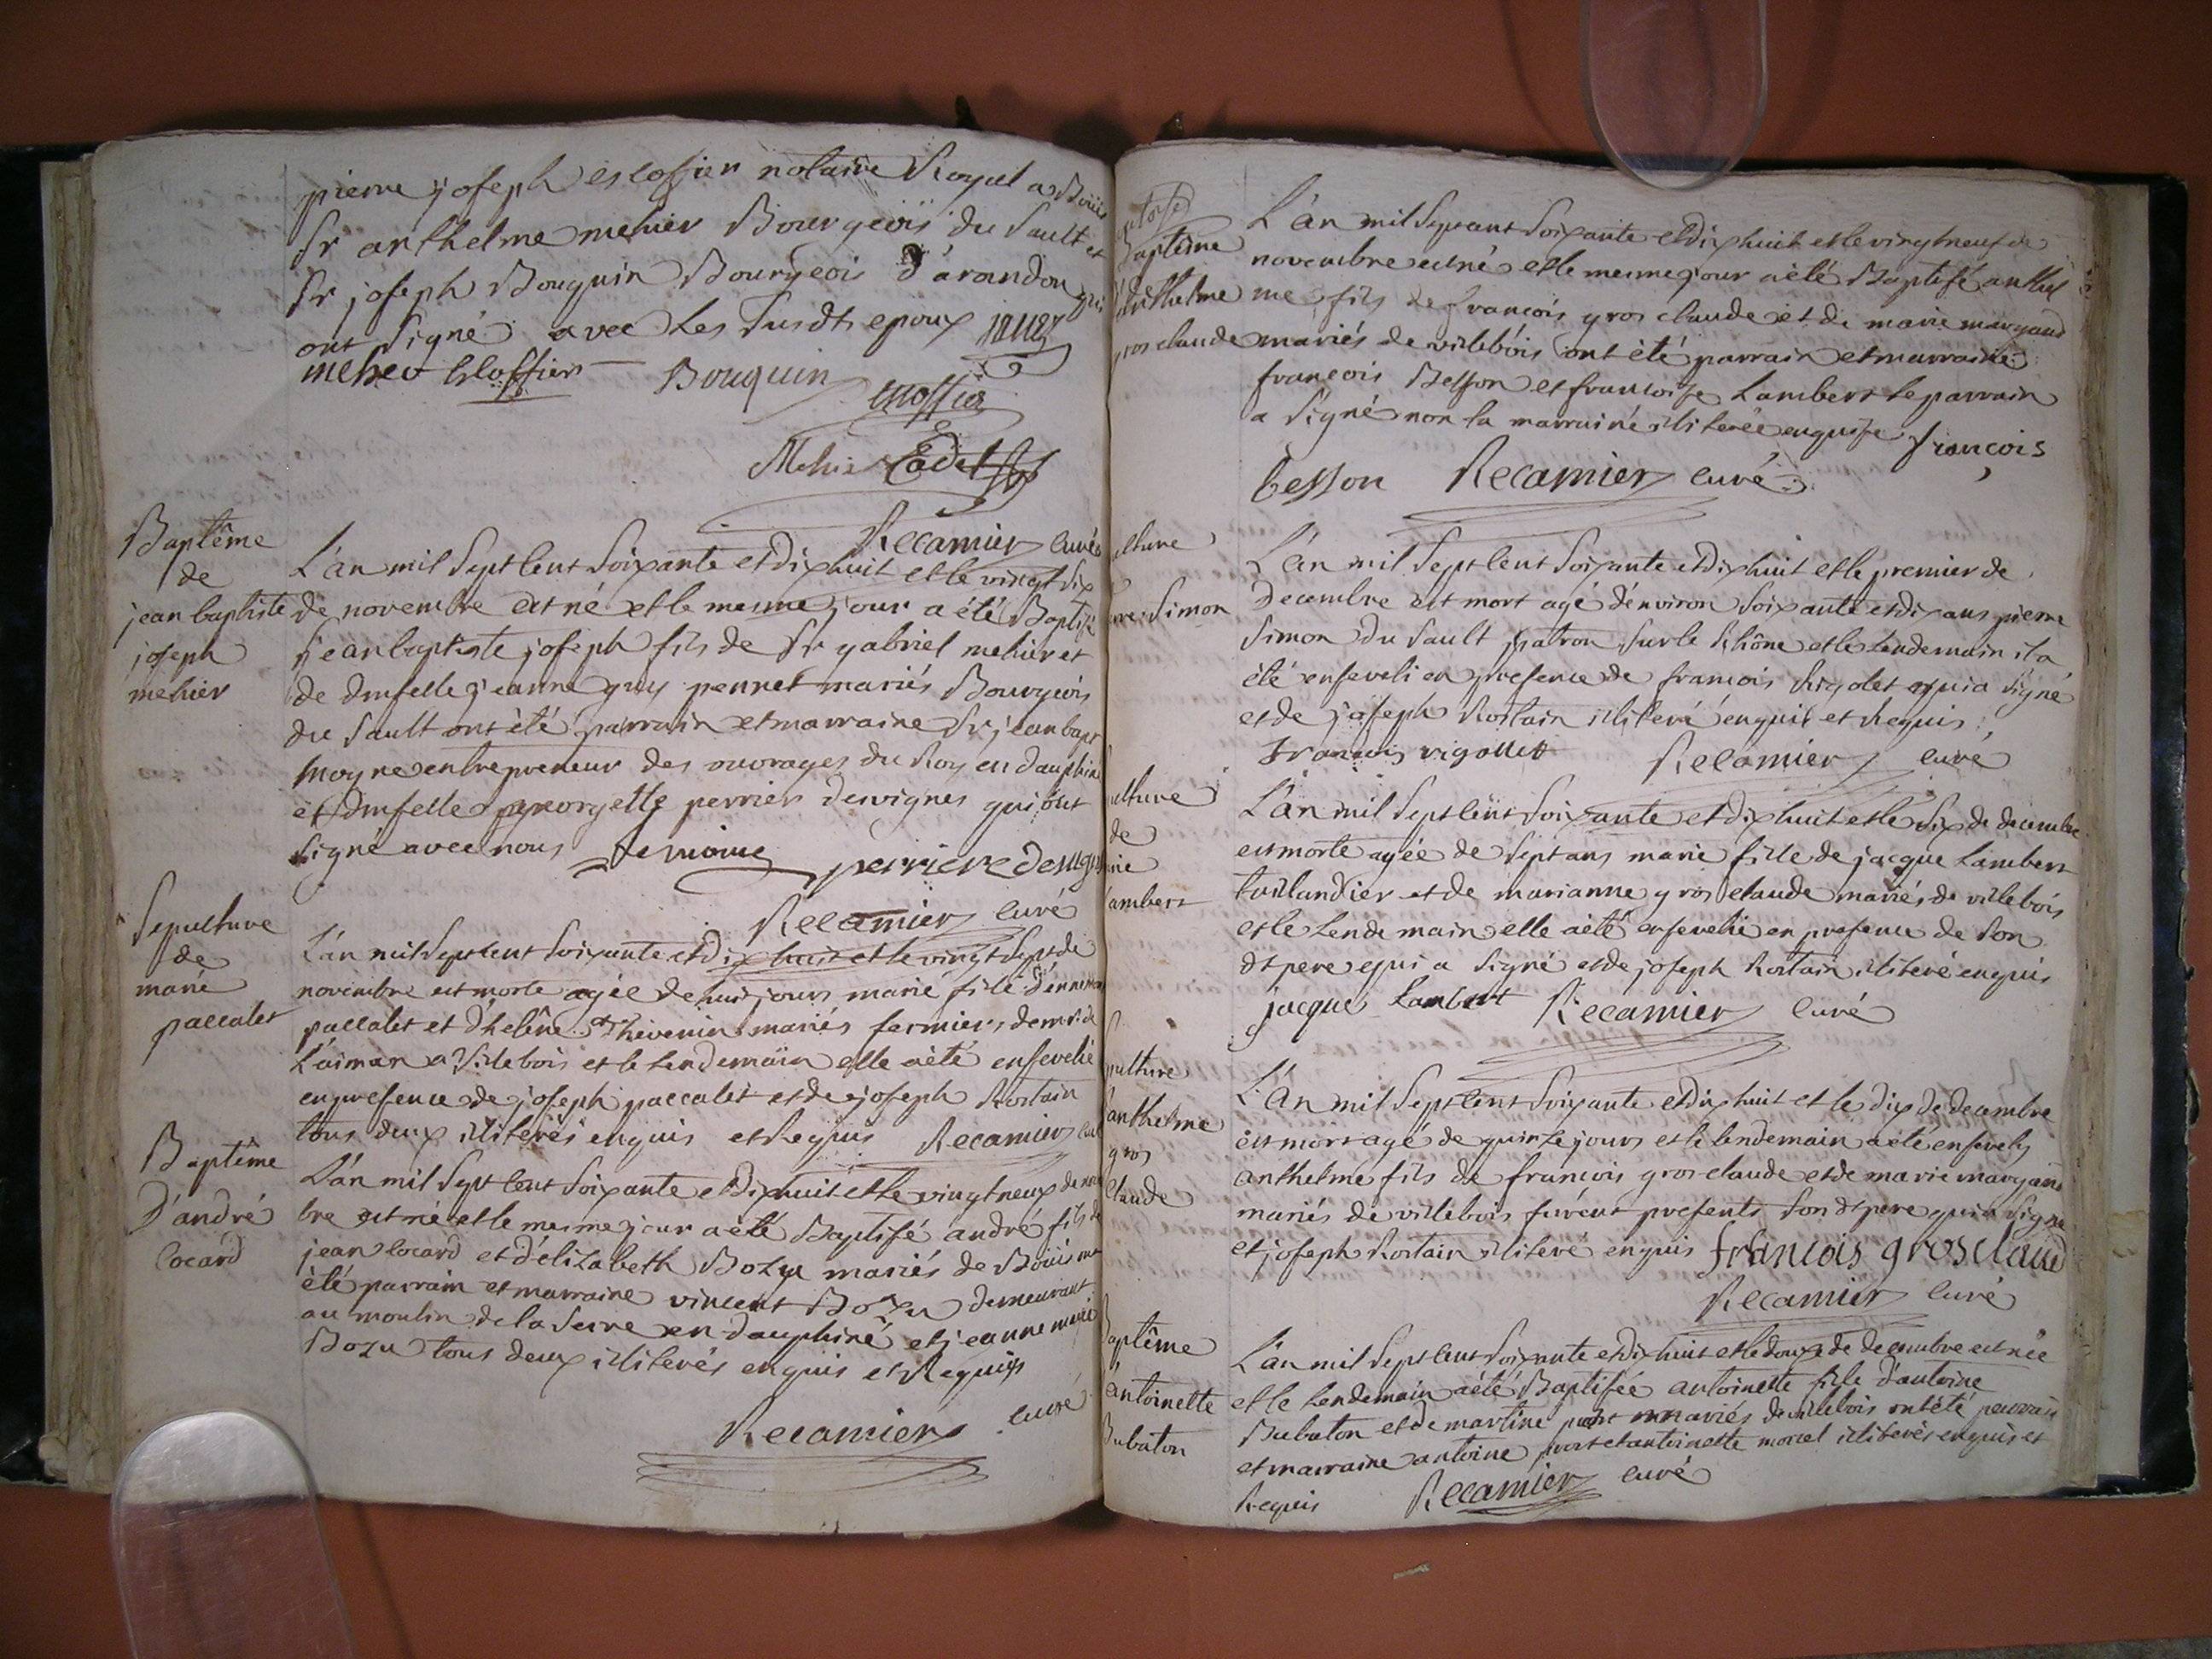 pierre joseph escoffier notaire Royal a Bouis
Sr anthelme mehier Bourgeois du Sault et
Sr joseph Bouquin Bourgeois d'arandon qui
ont signé avec les susdts epoux
meheo Escoffier Bouquin
escoffier
Mehier Cadet
Recamier curé
Baptême
de
jean baptiste
joseph
mehier
L'an mil sept cent soixante et dix huit et le vingt six
de novembre est né et le mesme jour a été Baptisé
jean baptiste joseph fils de Sr gabriel mehier et
de dmselle jeanne guy pennet mariés Bourgeois
du Sault ont été parrain et marraine Sr jean bapt
moyne entrepreneur des ouvrages du Roy en dauphiné
et dmselle georgette perrier desvignes qui ont
signé avec nous Lemoine perriere desvignes
Recamier curé
Sepulture
de
marie
paccalet
L'an mil sept cent soixante et dix huit et le vingt sept de
novembre est morte agée de huit jours marie fille d'ennemond
paccalet et d'helêne Thevenin mariés fermiers de mr de
Laimar a Vilebois et le lendemain elle a été ensevelie
en presence de joseph paccalet et de joseph Rostain
tous deux illiterés enquis et Requis Recamier curé
Baptême
D'andré
Cocard
L'an mil sept cent soixante et dix huit et le vingt neuf de novem
bre est né et le mesme jour a été Baptisé andré fils de
jean Cocard et d'élizabeth Bozu mariés de Bouis ont
été parrain et marraine vincent Bozu demeurant
au moulin de la Serve en dauphiné et jeanne marie
Bozu tous deux illiterés enquis et Requis
Recamier curé
Baptême
d'anthelme
gros claude
L'an mil sept cent soixante et dix huit et le vingt neuf de
novembre est né et le mesme jour a été Baptisé anthel
me fils de françois gros claude et de marie margand
mariés de villebois ont été parrain et marraine
françois Besson et francoise Lambert le parrain
a signé non la marraine illiterée enquise françois
besson Recamier curé
ulture
Simon
L'an mil sept cent soixante et dix huit et le premier de
Decembre est mort agé d'environ soixante et dix ans pierre
Simon du Sault patron sur le Rhône et le lendemain il a
été enseveli en presence de francois Rigolet qui a signé
et de joseph Rostain illiteré enquis et Requis
francois rigollet Recamier curé
ulture
de
rie
Lambert
L'an mil sept cent soixante et dix huit et le six de decembre
est morte agée de sept ans marie fille de jacque Lambert
taillandier et de marianne gros claude mariés de villebois
et le lendemain elle a été ensevelie en presence de son
dt pere qui a signé et de joseph Rostain illiteré enquis
jacque Lambert Recamier curé
pulture
d'anthelme
gros
claude
L'an mil sept cent soixante et dix huit et le dix de decembre
est mort agé de quinze jours et le lendemain a été ensevely
anthelme fils de françois gros claude et de marie margand
mariés de villebois furent presents son dt pere qui a signé
et joseph Rostain illiteré enquis francois grosclaud
Recamier curé
Baptême
d'antoinette
Bubaton
L'an mil sept cent soixante et dix huit et le douze de decembre est née
et le lendemain a été Baptisée antoinette fille d'antoine
Bubaton et de martine mariés de villebois ont été parrain
et marraine antoine et antoinette morel illiterés enquis et
Requis Recamier curé